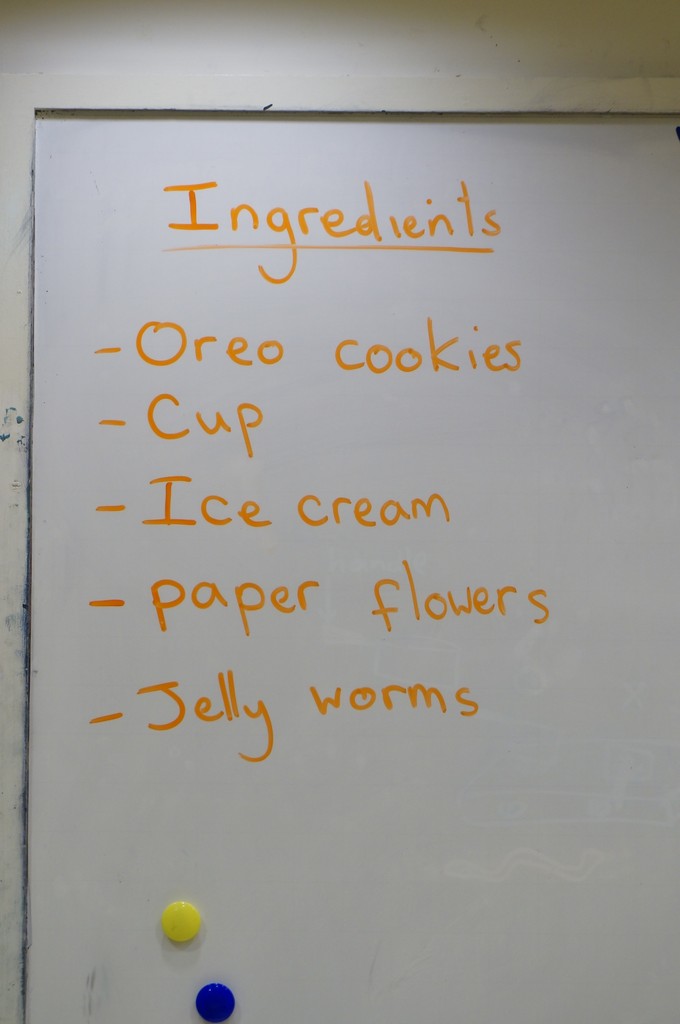 Ingredients
- Oreo cookies
- Cup
- Ice cream
- paper flowers
- Jelly worms